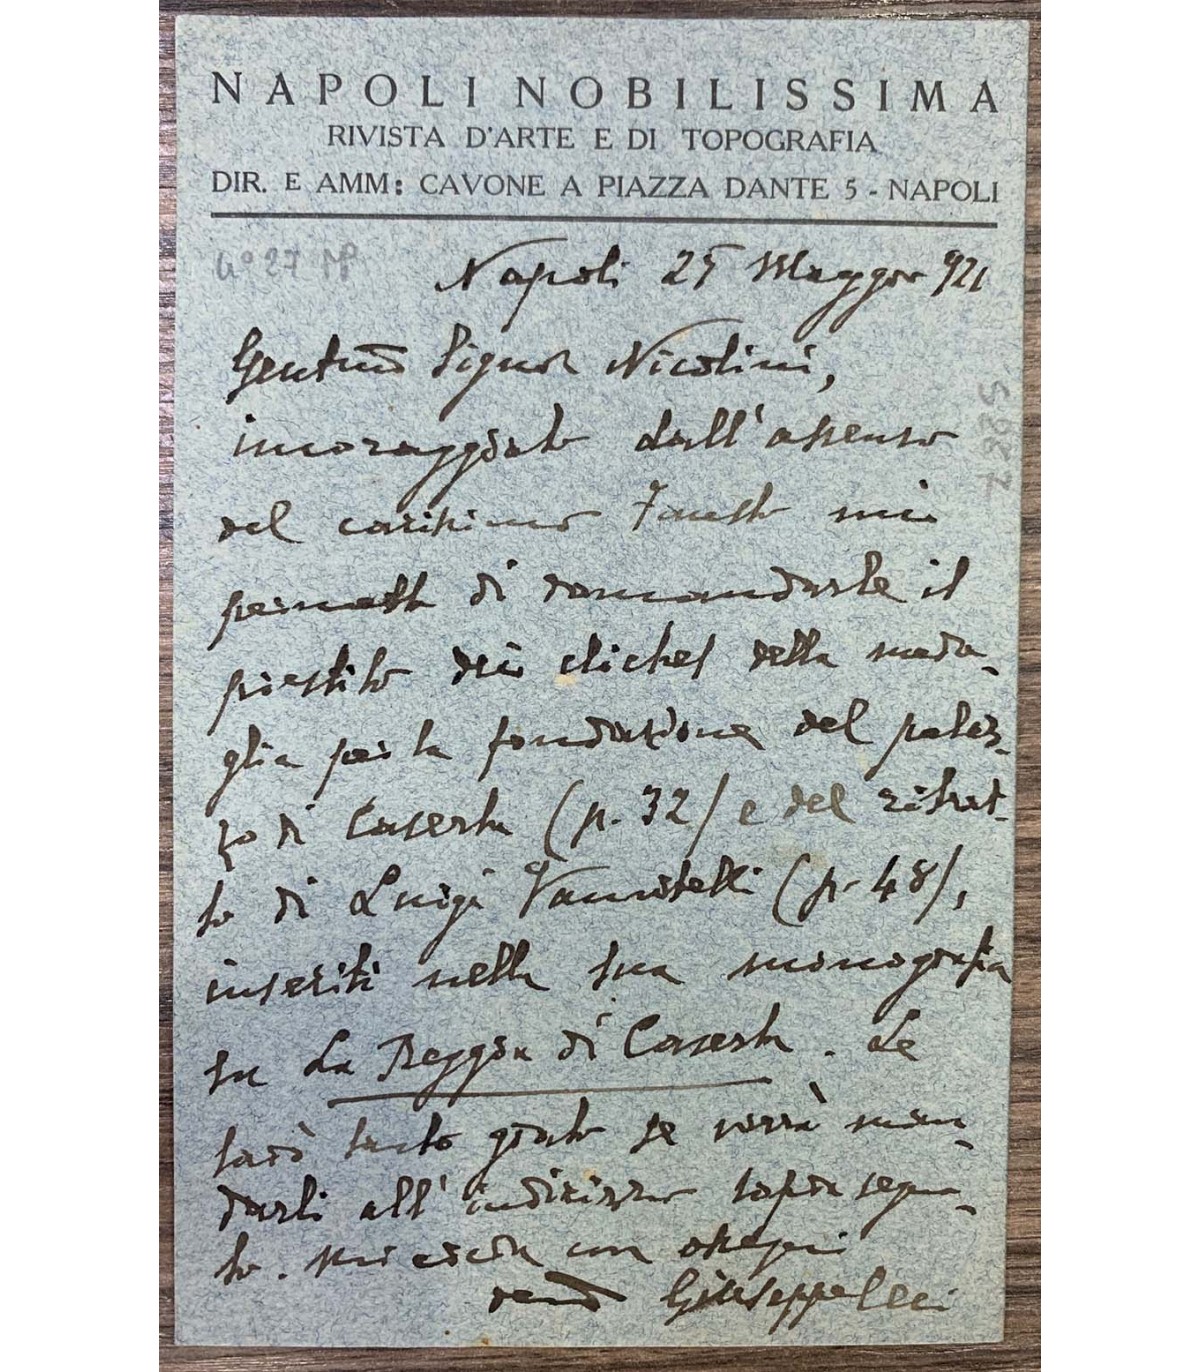 NAPOLI NOBILISSIMA
RIVISTA D'ARTE E DI TOPOGRAFIA
DIR. E AMM: CAVONE A PIAZZA DANTE 5 - NAPOLI
Napoli 25 Maggio 921
Gentmo Signor Nicolini,
incoraggiato dall'assenso
del carissimo Fausto mi
permetto di domandarle il
prestito dei clichés della meda-
glia per la fondazione del palaz-
zo di Caserta (p. 32) e del ritrat-
to di Luigi Vanvitelli (p. 48),
inseriti nella sua monografia
su La Reggia di Caserta. Le
sarò tanto grato se vorrà man-
darli all'indirizzo sopra segna-
to. Mi creda con ossequi
devmo Giuseppe Ceci
5887